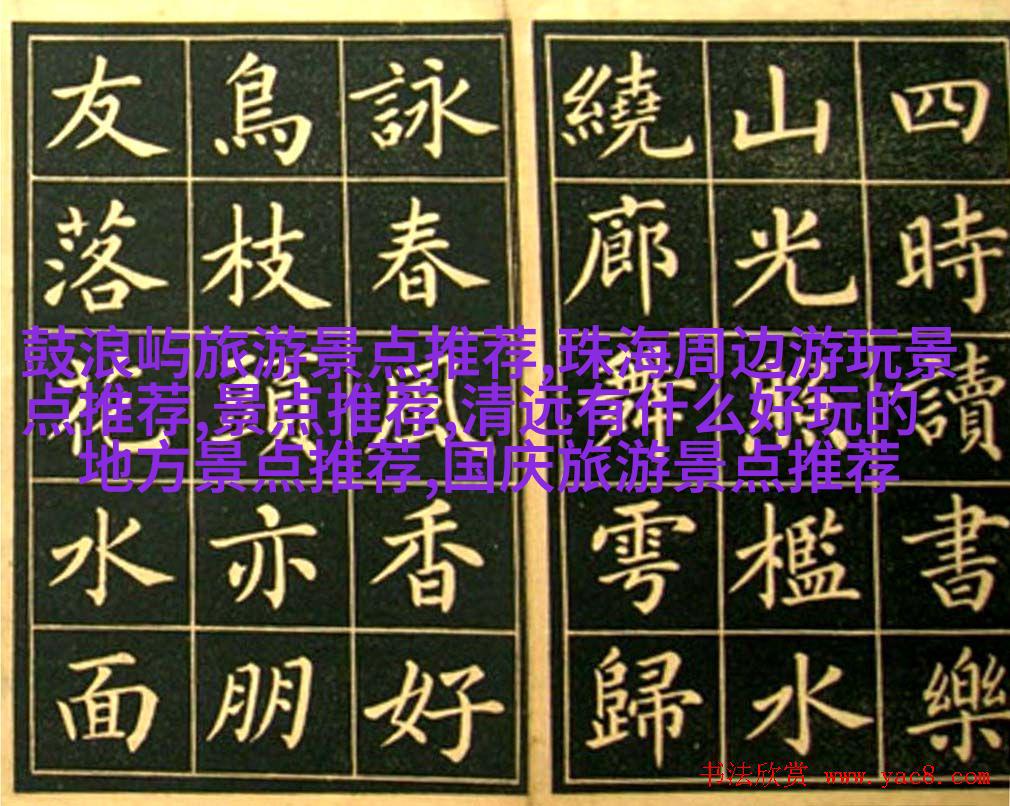 四時讀書樂
山光照檻水
繞廊舞雩歸
詠春風香好
鳥枝頭亦朋
友落花水面
鼓浪屿旅游景点推荐,珠海周边游玩景
点推荐,景点推荐,清远有什么好玩的
地方景点推荐,国庆旅游景点推荐
书法欣赏 www.yac8.com